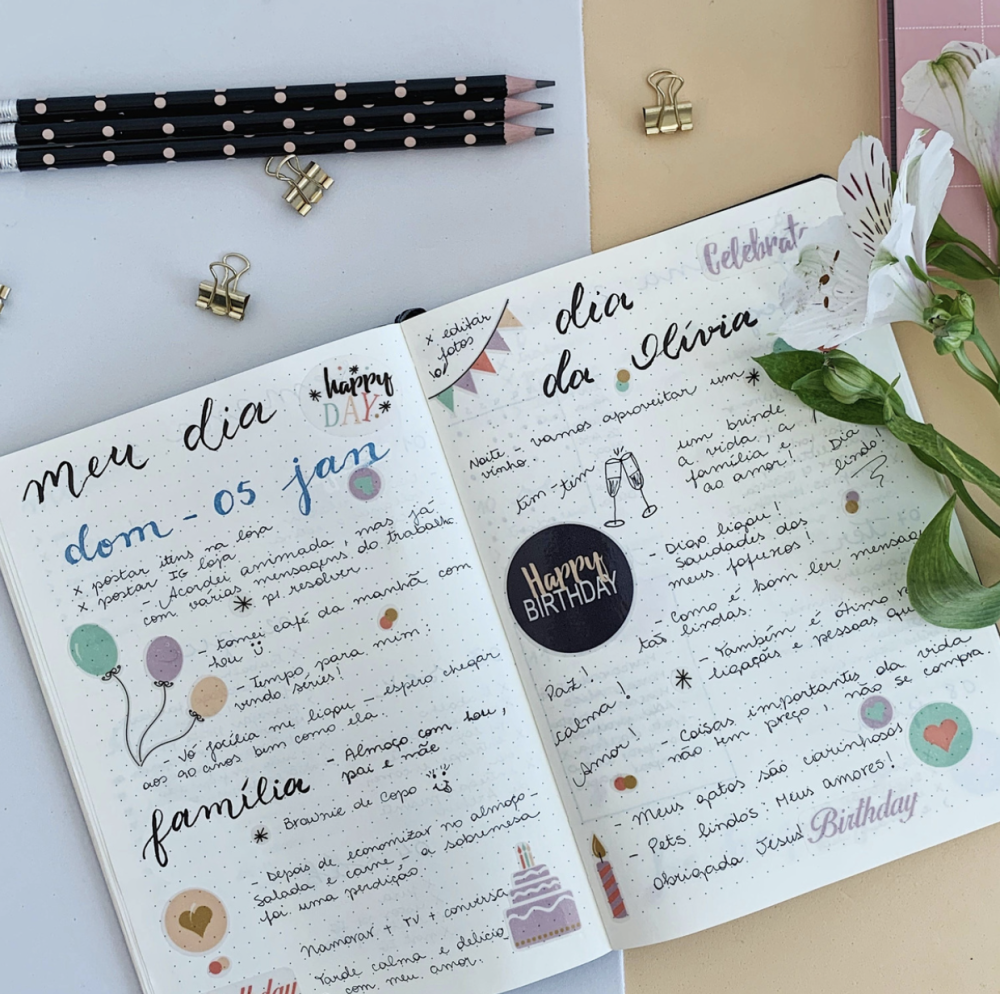 meu dia
happy
DAY.
dom - 05 jan
x postar itens na loja
x postar IG loja
- Acordei animada, mas já
com várias mensagens do trabalho
p/ resolver...
- tomei café da manhã com
Lou
- Tempo para mim:
vendo séries!
- Vó Jocília me ligou - espero chegar
aos 90 anos bem como ela.
família
- Almoço com Lou,
pai e mãe
Brownie de copo
- Depois de economizar no almoço -
salada e carne - a sobremesa
foi uma perdição.
Namorar + TV + conversa
Tarde calma e
com meu amor.
Celebrat
x editar
fotos
dia
da Olívia
Noite - vamos aproveitar um
vinho.
tim-tim
um brinde
a vida, a
família e
ao amor! Dia
lindo!
Happy
BIRTHDAY
- Digo ligou!
Saudades dos
meus fofuxos!
- Como é bom ler
tão lindas.
- Também é ótimo
ligações e pessoas
Paz!
calma!
Amor!
- Coisas importantes da vida
não tem preço, não se compra.
- Meus gatos são carinhosos
- Pets lindos: Meus amores!
Obrigada Jesus!
Birthday